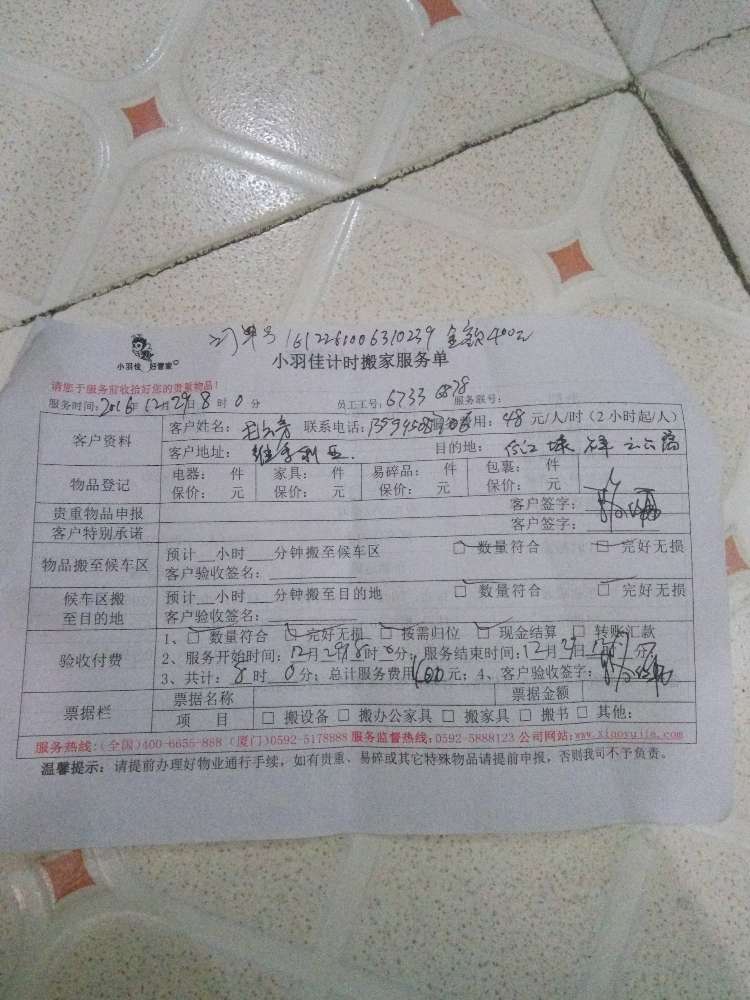 订单号 1612261006310239 金额400元
小羽佳 好管家®
小羽佳计时搬家服务单
请您于服务前收拾好您的贵重物品!
服务时间: 2016年12月29日8时0分 员工工号: 6733 6878 服务联号:
客户资料 客户姓名: 联系电话: 服务费用: 48 元/人/时(2小时起/人)
客户地址: 维多利亚 目的地:
物品登记 电器: 件 家具: 件 易碎品: 件 包裹: 件
保价: 元 保价: 元 保价: 元 保价: 元
贵重物品申报 客户签字:
客户特别承诺 客户签字:
物品搬至候车区 预计__小时___分钟搬至候车区 □ 数量符合 □ 完好无损
客户验收签名:
候车区搬至目的地 预计__小时___分钟搬至目的地 □ 数量符合 □ 完好无损
客户验收签名:
验收付费 1、□ 数量符合 □ 完好无损 □ 按需归位 □ 现金结算 □ 转账汇款
2、服务开始时间: 12月29日8时0分; 服务结束时间: 12月29日12时 分
3、共计: 时0分; 总计服务费用 400 元; 4、客户验收签字:
票据栏 票据名称 票据金额
项 目 □ 搬设备 □ 搬办公家具 □ 搬家具 □ 搬书 □ 其他:
服务热线:(全国)400-6655-888 (厦门)0592-5178888 服务监督热线:0592-5888123 公司网站:www.xiaoyujia.com
温馨提示: 请提前办理好物业通行手续,如有贵重、易碎或其它特殊物品请提前申报,否则我司不予负责。